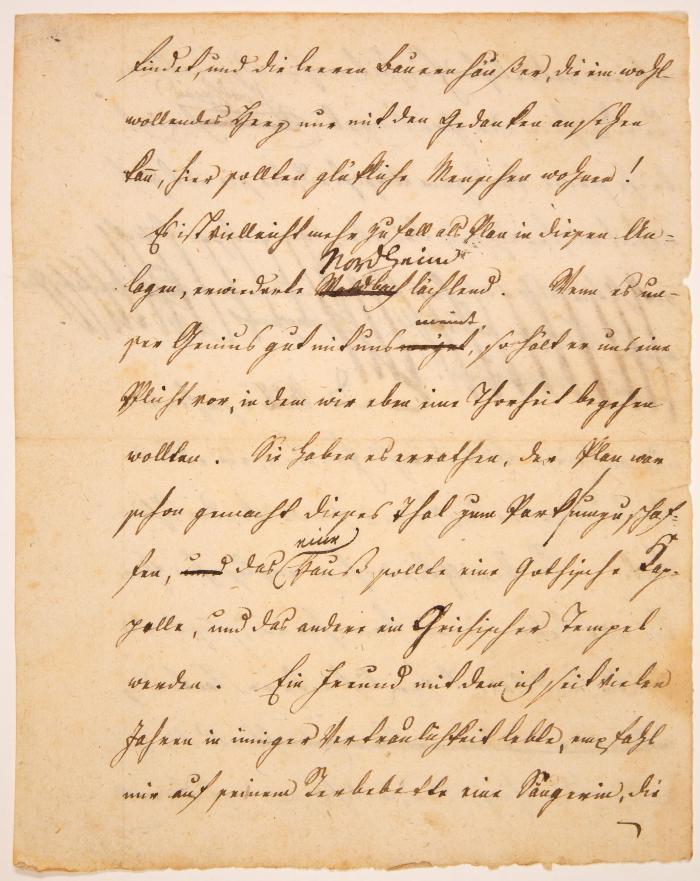 findet, und die leeren Bauernhäußer, die ein wohl-
wollendes Herz nur mit den Gedanken ansehen
kan̄, hier sollten glükliche Menschen wohnen!
Es ist vielleicht mehr Zufall als Plan in diesen An-
Nordheim
lagen, erwiederte Waldbach lächlend. Wenn es un-
meint
ser Genius gut mit uns meynt, so hält er uns eine
Pflicht vor, in dem wir eben eine Thorheit begehen
wollten. Sie haben es errathen, der Plan war
schon gemacht dieses Thal zum Park umzuschaf-
eine
fen, und das Hauß sollte eine Gothische Kap-
pelle, und das andere ein Grichischer Tempel
werden. Ein Freund mit dem ich seit vielen
Jahren in inniger Vertraulichkeit lebte, empfahl
mir auf seinem Sterbebette eine Sängerin, die